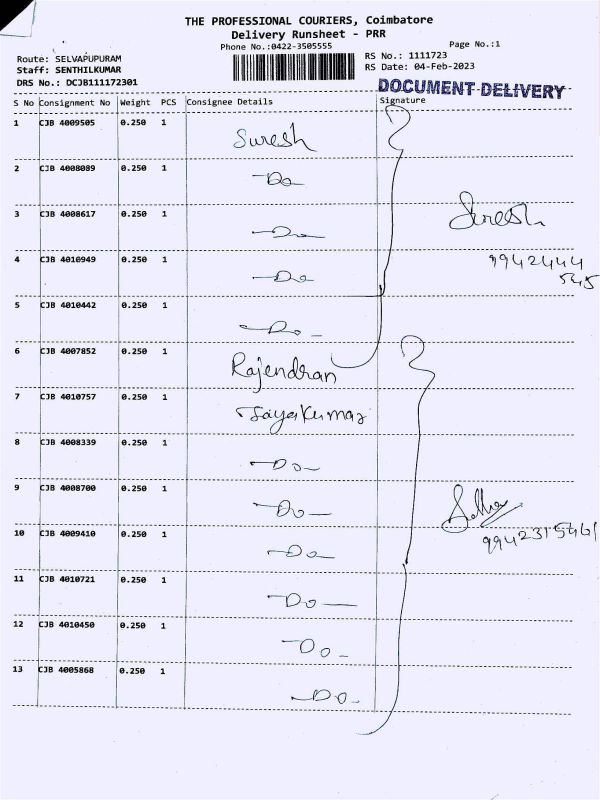 THE PROFESSIONAL COURIERS, Coimbatore
Delivery Runsheet - PRR
Phone No.:0422-3505555
Page No.:1
Route: SELVAPUPURAM
RS No.: 1111723
Staff: SENTHILKUMAR
RS Date: 04-Feb-2023
DRS No.: DCJB111172301
DOCUMENT DELIVERY
S No Consignment No Weight PCS Consignee Details Signature
1 CJB 4009505 0.250 1 Suresh
2 CJB 4008089 0.250 1 -Do
3 CJB 4008617 0.250 1 -Do-
Suresh
4 CJB 4010949 0.250 1 -Do
9942444
545
5 CJB 4010442 0.250 1 -Do-
6 CJB 4007852 0.250 1 Rajendran
7 CJB 4010757 0.250 1 Jayakumar
8 CJB 4008339 0.250 1 -Do-
9 CJB 4008700 0.250 1 -Do-
10 CJB 4009410 0.250 1 -Do-
9942315461
11 CJB 4010721 0.250 1 -Do-
12 CJB 4010450 0.250 1 -Do-
13 CJB 4005868 0.250 1 -Do-